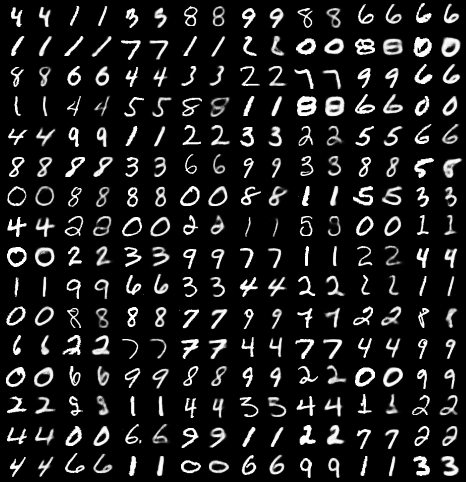 4 4 1 1 3 3 8 8 9 9 8 8 6 6 6 6
1 1 1 1 7 7 1 1 2 2 0 0 8 8 0 0
8 8 6 6 4 4 3 3 2 2 7 7 9 9 6 6
1 1 4 4 5 5 8 8 1 1 8 8 6 6 0 0
4 4 9 9 1 1 2 2 3 3 2 2 5 5 6 6
8 8 8 8 3 3 6 6 9 9 3 3 8 8 5 8
0 0 8 8 8 8 0 0 8 8 1 1 5 5 3 3
4 4 2 2 0 0 2 2 1 1 5 8 0 0 1 1
0 0 2 2 3 3 9 9 7 7 1 1 2 2 4 4
1 1 9 9 6 6 3 3 4 4 2 2 2 2 1 1
0 0 8 8 8 8 7 7 9 9 7 7 2 2 8 8
6 6 2 2 7 7 7 7 4 4 7 7 4 4 9 9
0 0 6 6 9 9 8 8 9 9 2 2 0 0 9 9
2 2 9 8 1 1 4 4 3 5 4 4 1 1 2 2
4 4 0 0 6 6 9 9 1 1 2 2 7 7 2 2
4 4 6 6 1 1 0 0 6 6 9 9 1 1 3 3